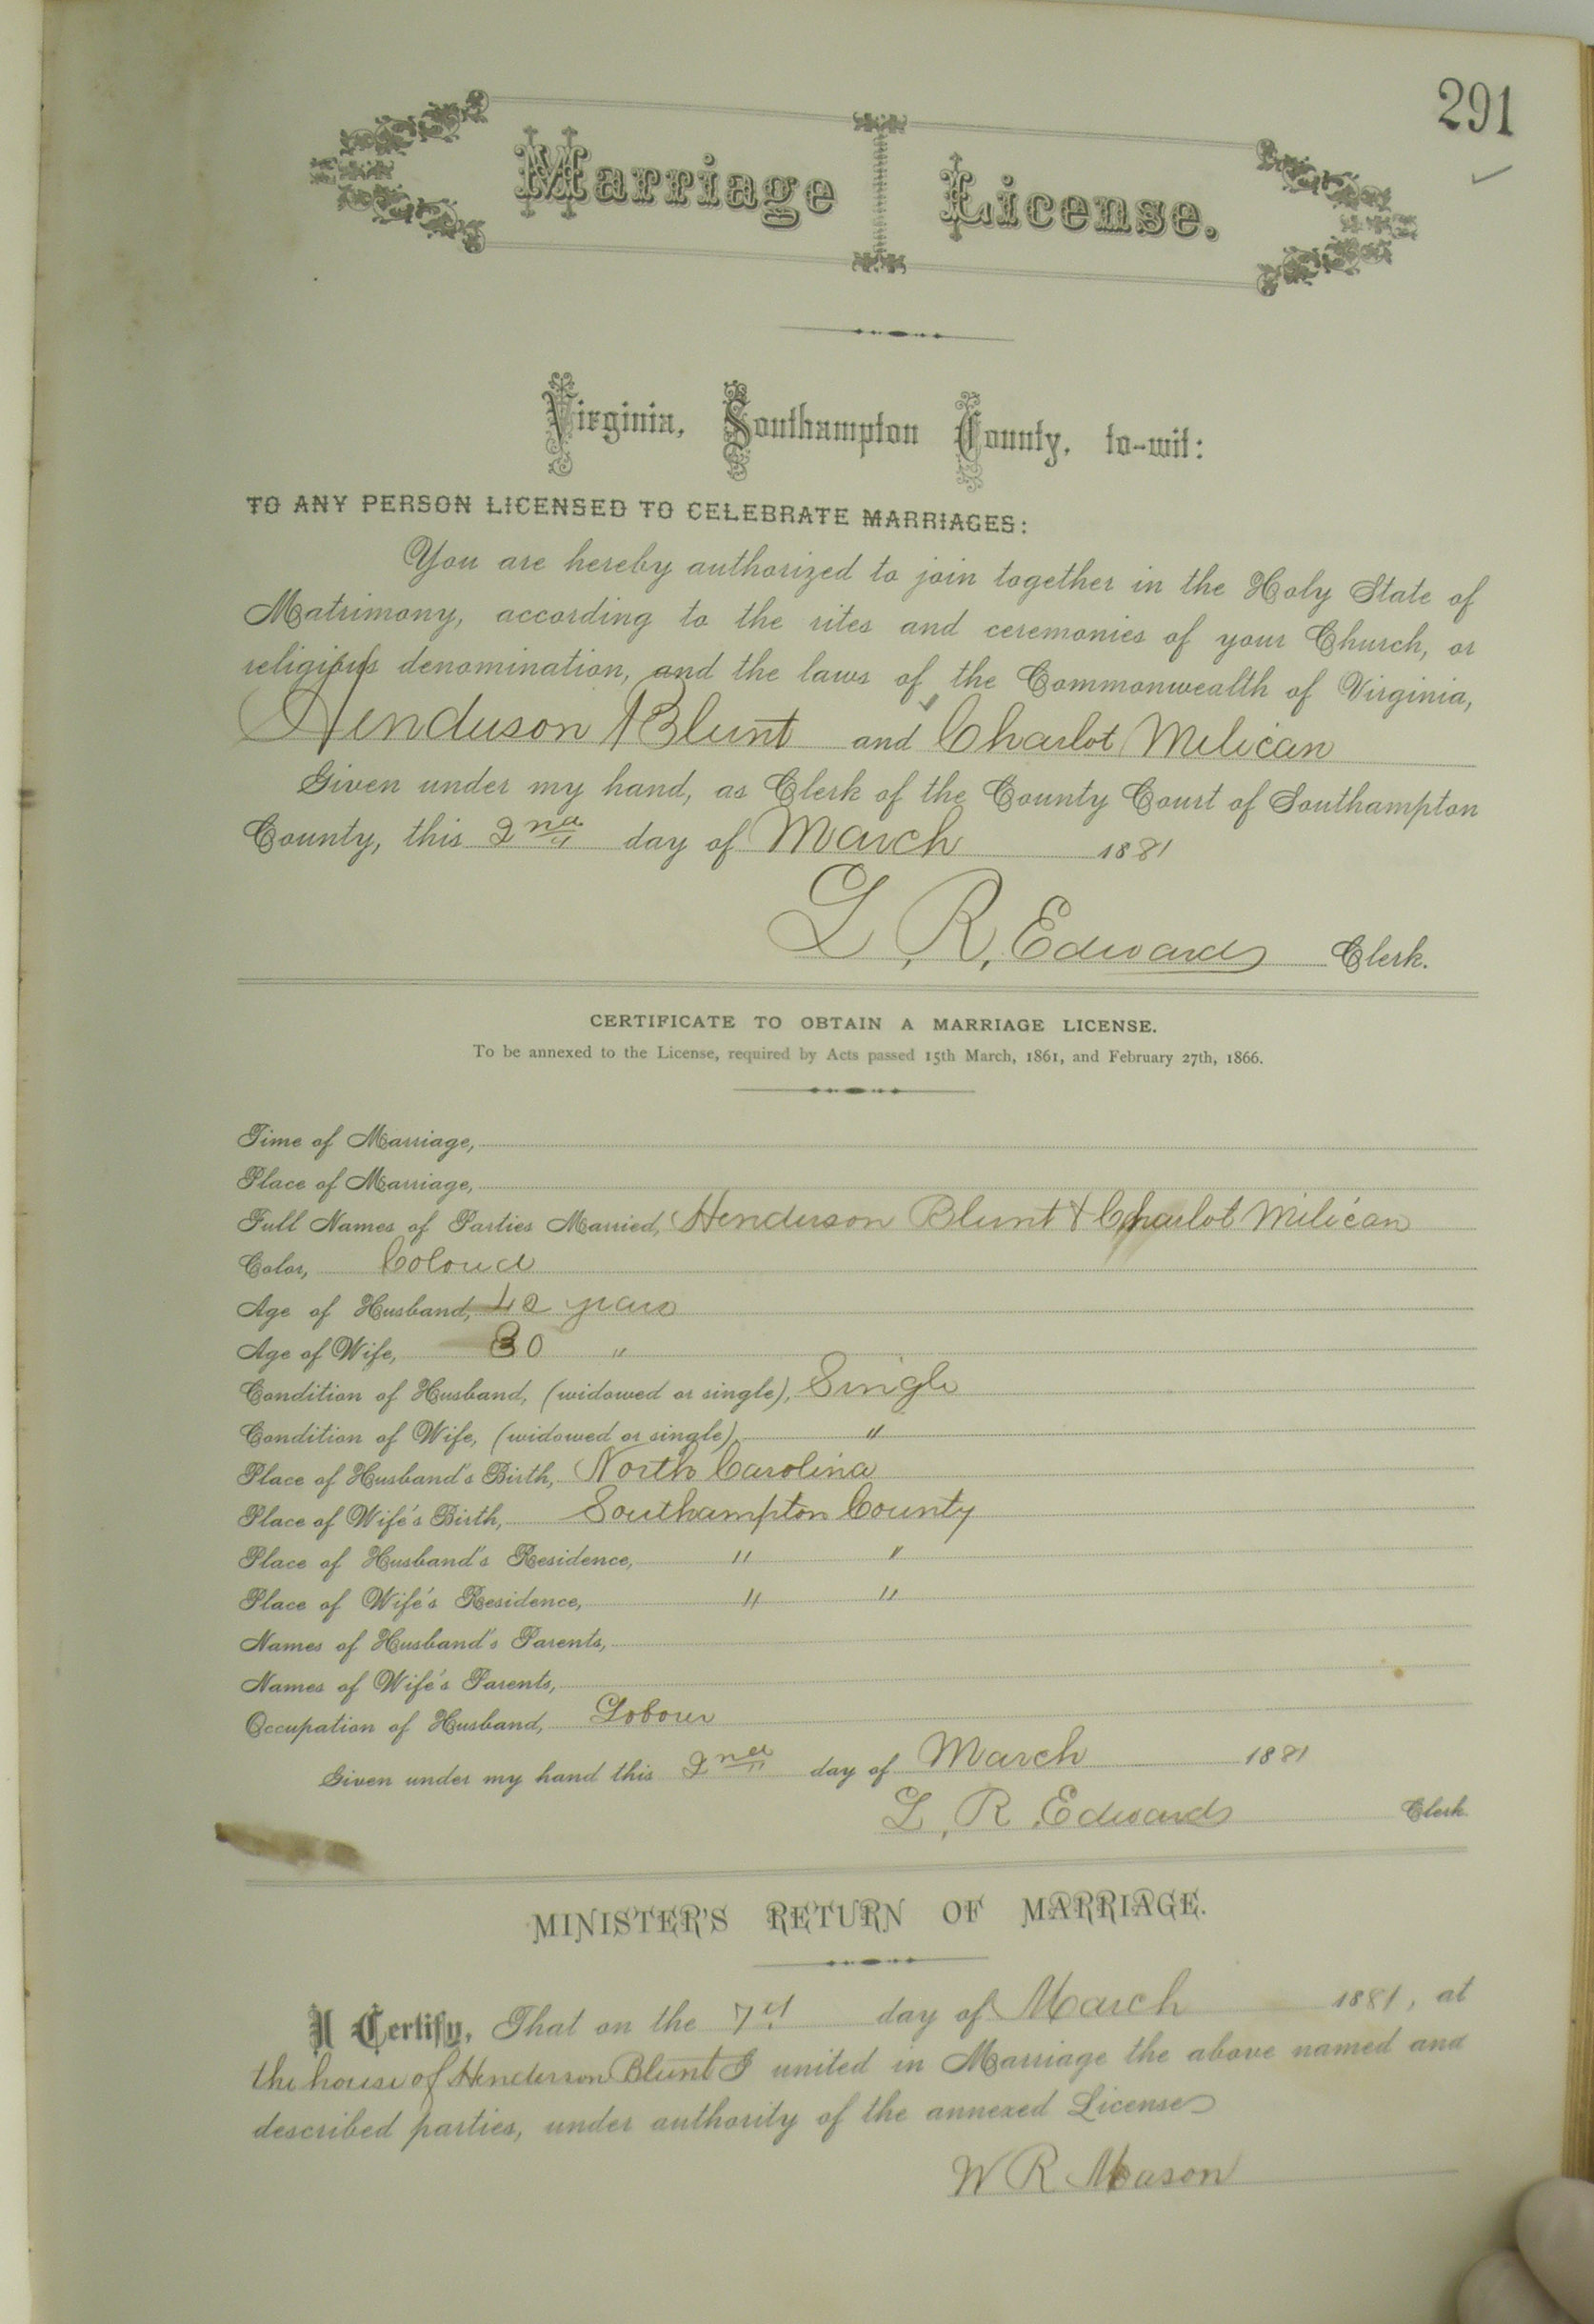 291
Marriage License.
Virginia, Southampton County, to-wit:
TO ANY PERSON LICENSED TO CELEBRATE MARRIAGES:
You are hereby authorized to join together in the Holy State of
Matrimony, according to the rites and ceremonies of your Church, or
religious denomination, and the laws of the Commonwealth of Virginia,
Henderson Blunt and Charlot Milican
Given under my hand, as Clerk of the County Court of Southampton
County, this 2nd day of March 1881
L. R. Edwards Clerk.
CERTIFICATE TO OBTAIN A MARRIAGE LICENSE.
To be annexed to the License, required by Acts passed 15th March, 1861, and February 27th, 1866.
Time of Marriage,
Place of Marriage,
Full Names of Parties Married, Henderson Blunt & Charlot Milican
Color, Colord
Age of Husband, 42 years
Age of Wife, 30 "
Condition of Husband, (widowed or single), Single
Condition of Wife, (widowed or single), "
Place of Husband's Birth, North Carolina
Place of Wife's Birth, Southampton County
Place of Husband's Residence, " "
Place of Wife's Residence, " "
Names of Husband's Parents,
Names of Wife's Parents,
Occupation of Husband, Laborer
Given under my hand this 2nd day of March 1881
L. R. Edwards Clerk.
MINISTER'S RETURN OF MARRIAGE.
I Certify, That on the 7th day of March 1881, at
the house of Henderson Blunt I united in Marriage the above named and
described parties, under authority of the annexed License
W R Mason